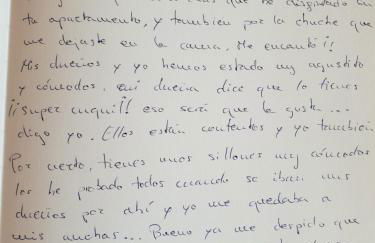 que he disfrutado en
tu apartamento, y también por la chuche que
me dejaste en la cama. Me encantó!!
Mis dueños y yo hemos estado muy agustito
y cómodos. mi dueña dice que lo tienes
¡¡super cuqui!! eso será que la gusta...
digo yo. Ellos están contentos y yo también
Por cierto, tienes unos sillones muy cómodos
los he probado todos cuando se iban mis
dueños por ahí y yo me quedaba a
mis anchas... Bueno ya me despido que